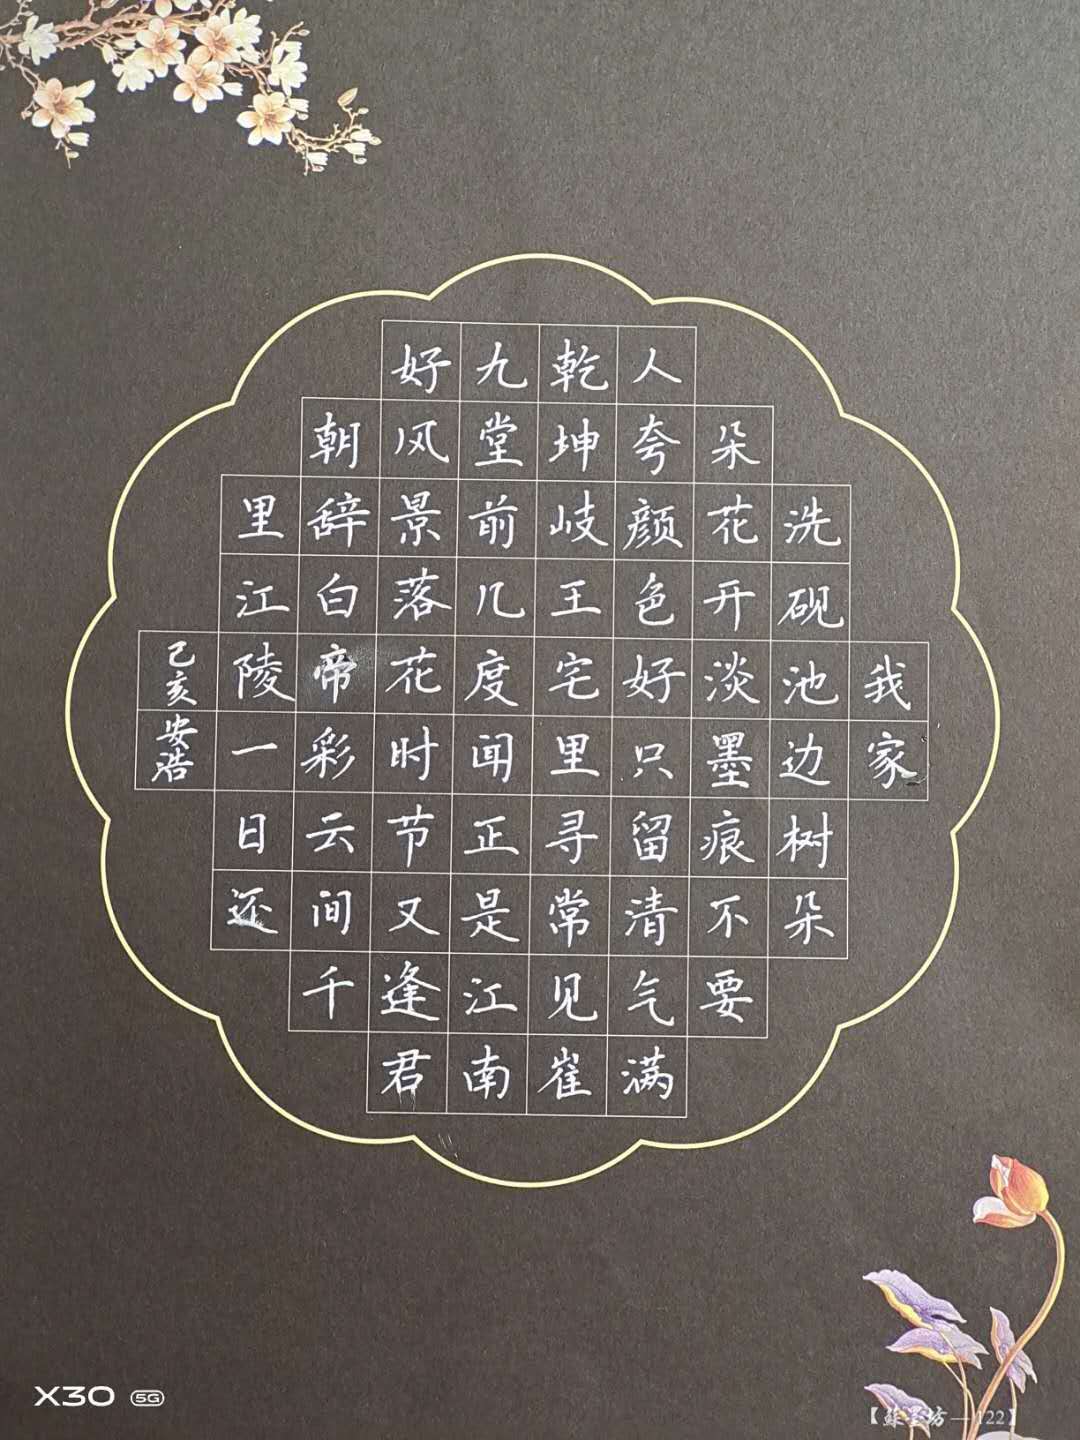 我家
洗砚池边树朵
朵花开淡墨痕不要
人夸颜色好只留清气满
乾坤岐王宅里寻常见崔
九堂前几度闻正是江南
好风景落花时节又逢君
朝辞白帝彩云间千
里江陵一日还
己亥安浩
X30 5G
【蘇墨坊—122】